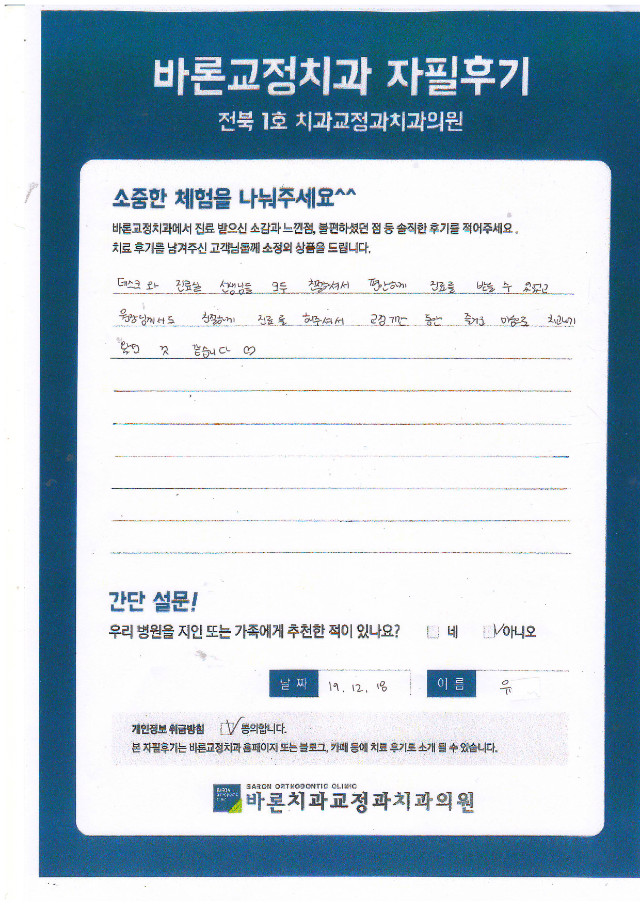 바론교정치과 자필후기
전북 1호 치과교정과치과의원
소중한 체험을 나눠주세요^^
바론교정치과에서 진료 받으신 소감과 느낀점, 불편하셨던 점 등 솔직한 후기를 적어주세요.
치료 후기를 남겨주신 고객님들께 소정의 상품을 드립니다.
데스크와 진료실 선생님들 모두 친절하셔서 편안하게 진료를 받을 수 있었고
원장님께서도 친절하게 진료를 해주셔서 교정기간 동안 즐거운 마음으로 치과에
왔던 것 같습니다 ♡
간단 설문!
우리 병원을 지인 또는 가족에게 추천한 적이 있나요? 네 아니오
날 짜 19. 12. 18 이 름 유
개인정보 취급방침 동의합니다.
본 자필후기는 바론교정치과 홈페이지 또는 블로그, 카페 등에 치료 후기로 소개 될 수 있습니다.
BARON ORTHODONTIC CLINIC
바론치과교정과치과의원